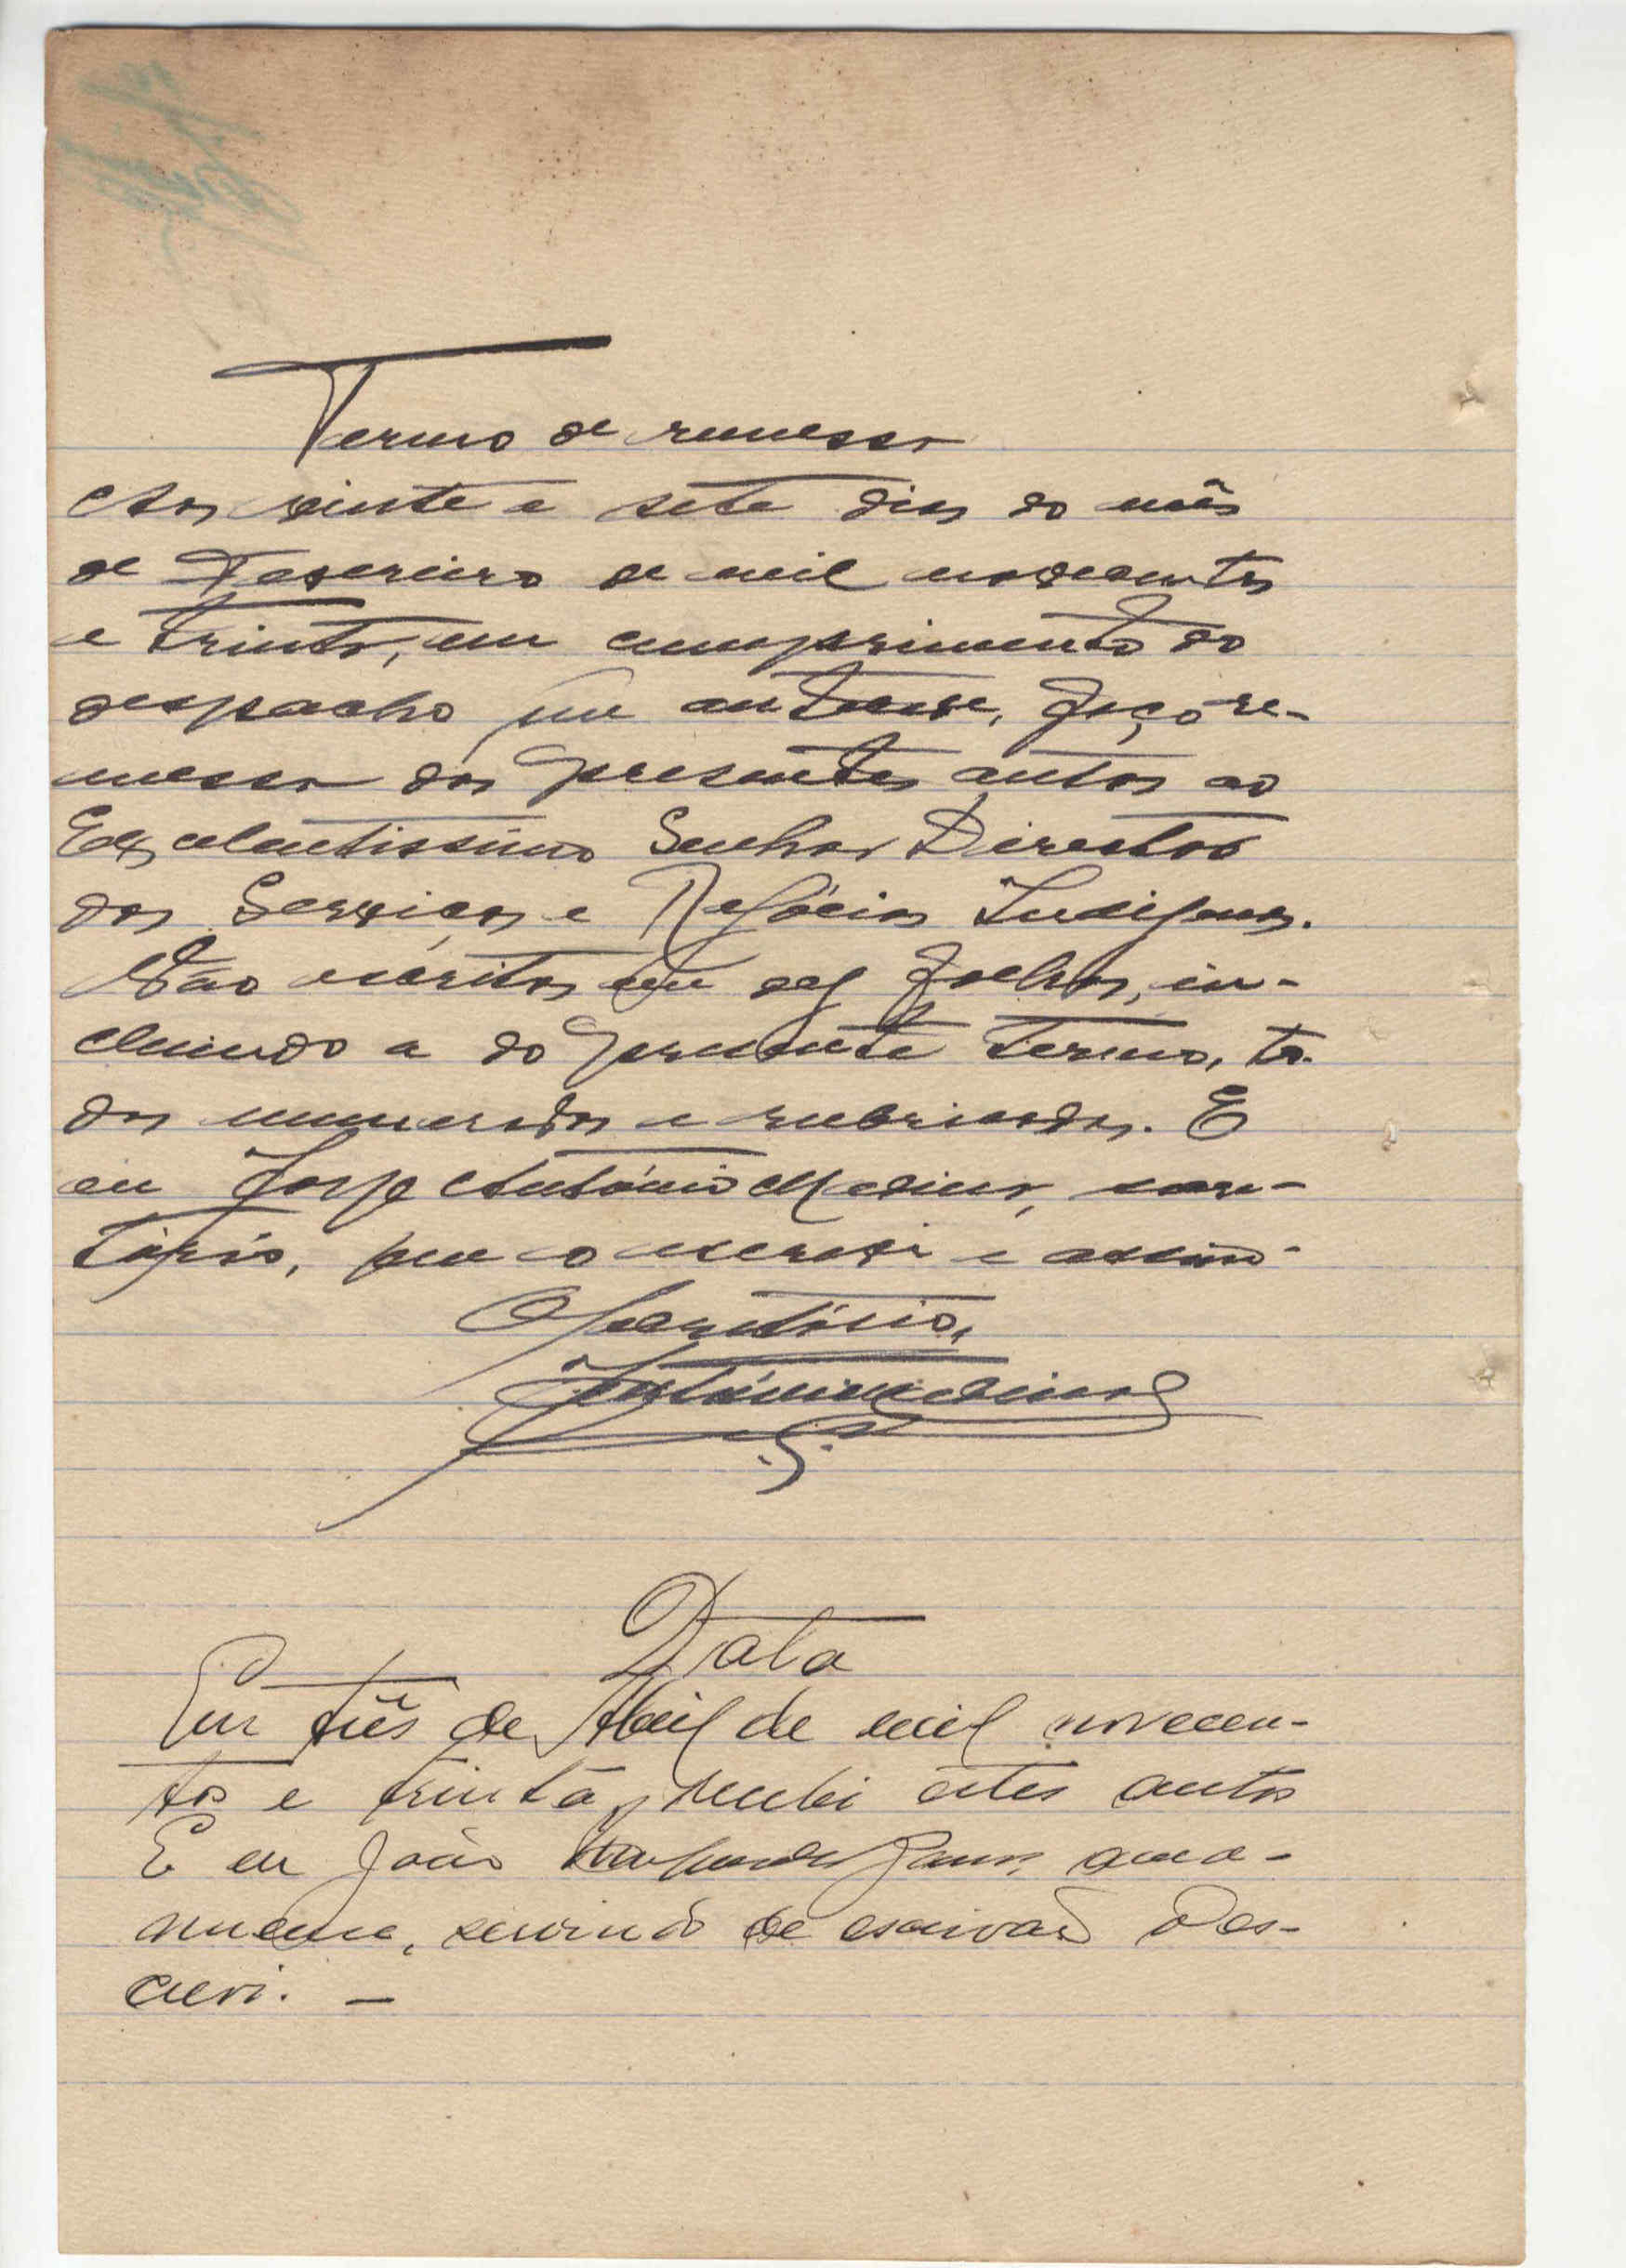 Termo de remessa
Aos vinte e sete dias do mês
de Fevereiro de mil novecentos
e trinta, em cumprimento do
despacho que antecede, faço re-
messa dos presentes autos ao
Excelentissimo Senhor Director
dos Serviços e Negócios Indigenas.
Vão escritos em dez folhas, in-
cluindo a do presente termo, to-
das numeradas e rubricadas. E
eu Jorge António Medina, secre-
tário, que o escrevi e assino-
O Secretário,
Data
Em três de Abril de mil novecen-
tos e trinta, recebi estes autos
E eu João ama-
nuense, servindo de escrivão o es-
crevi. —